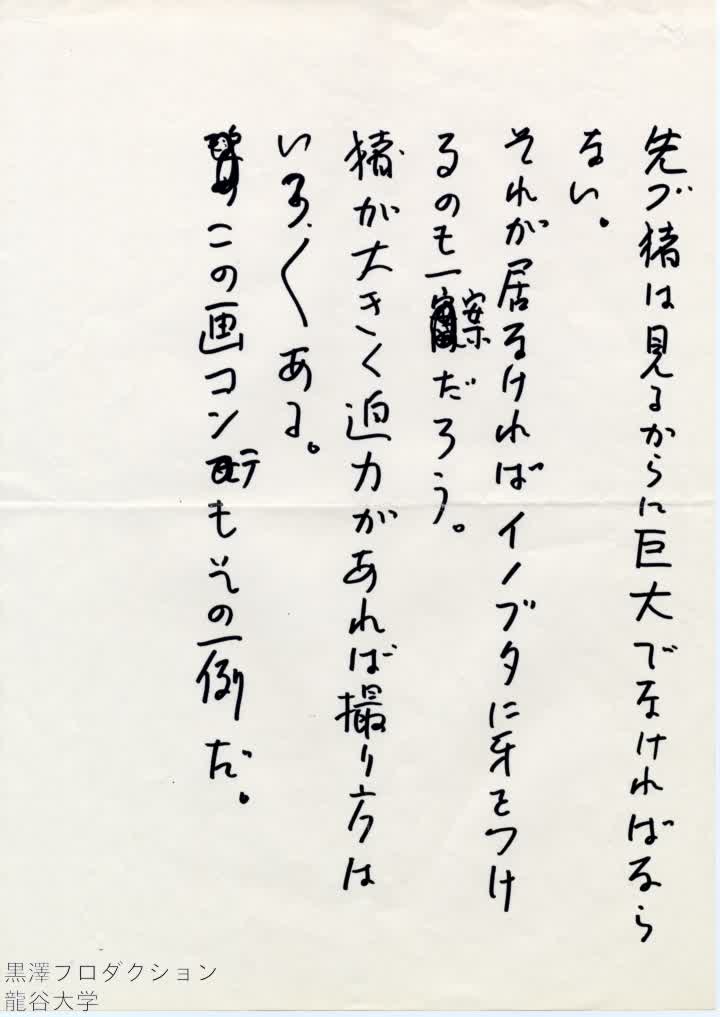 先づ猪は見るからに巨大でなければなら
ない。
それが居なければイノブタに牙をつけ
るのも一案だろう。
猪が大きく迫力があれば撮り方は
いろ〱ある。
この画コンテもその一例だ。
黒澤プロダクション
龍谷大学